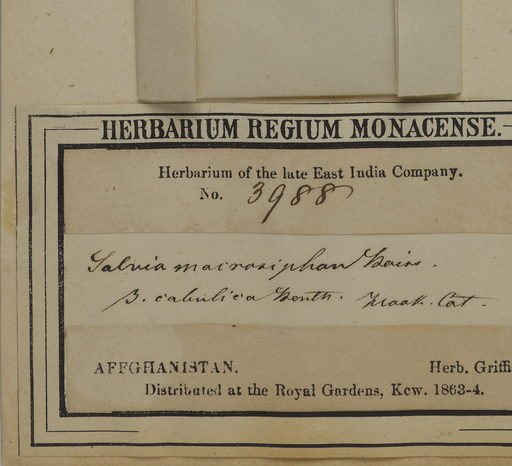 HERBARIUM REGIUM MONACENSE.
Herbarium of the late East India Company.
No. 3988
Salvia macrosiphon Boiss.
β. cabulica Benth. Hook. Cat.
AFFGHANISTAN. Herb. Griffi
Distributed at the Royal Gardens, Kew. 1863-4.